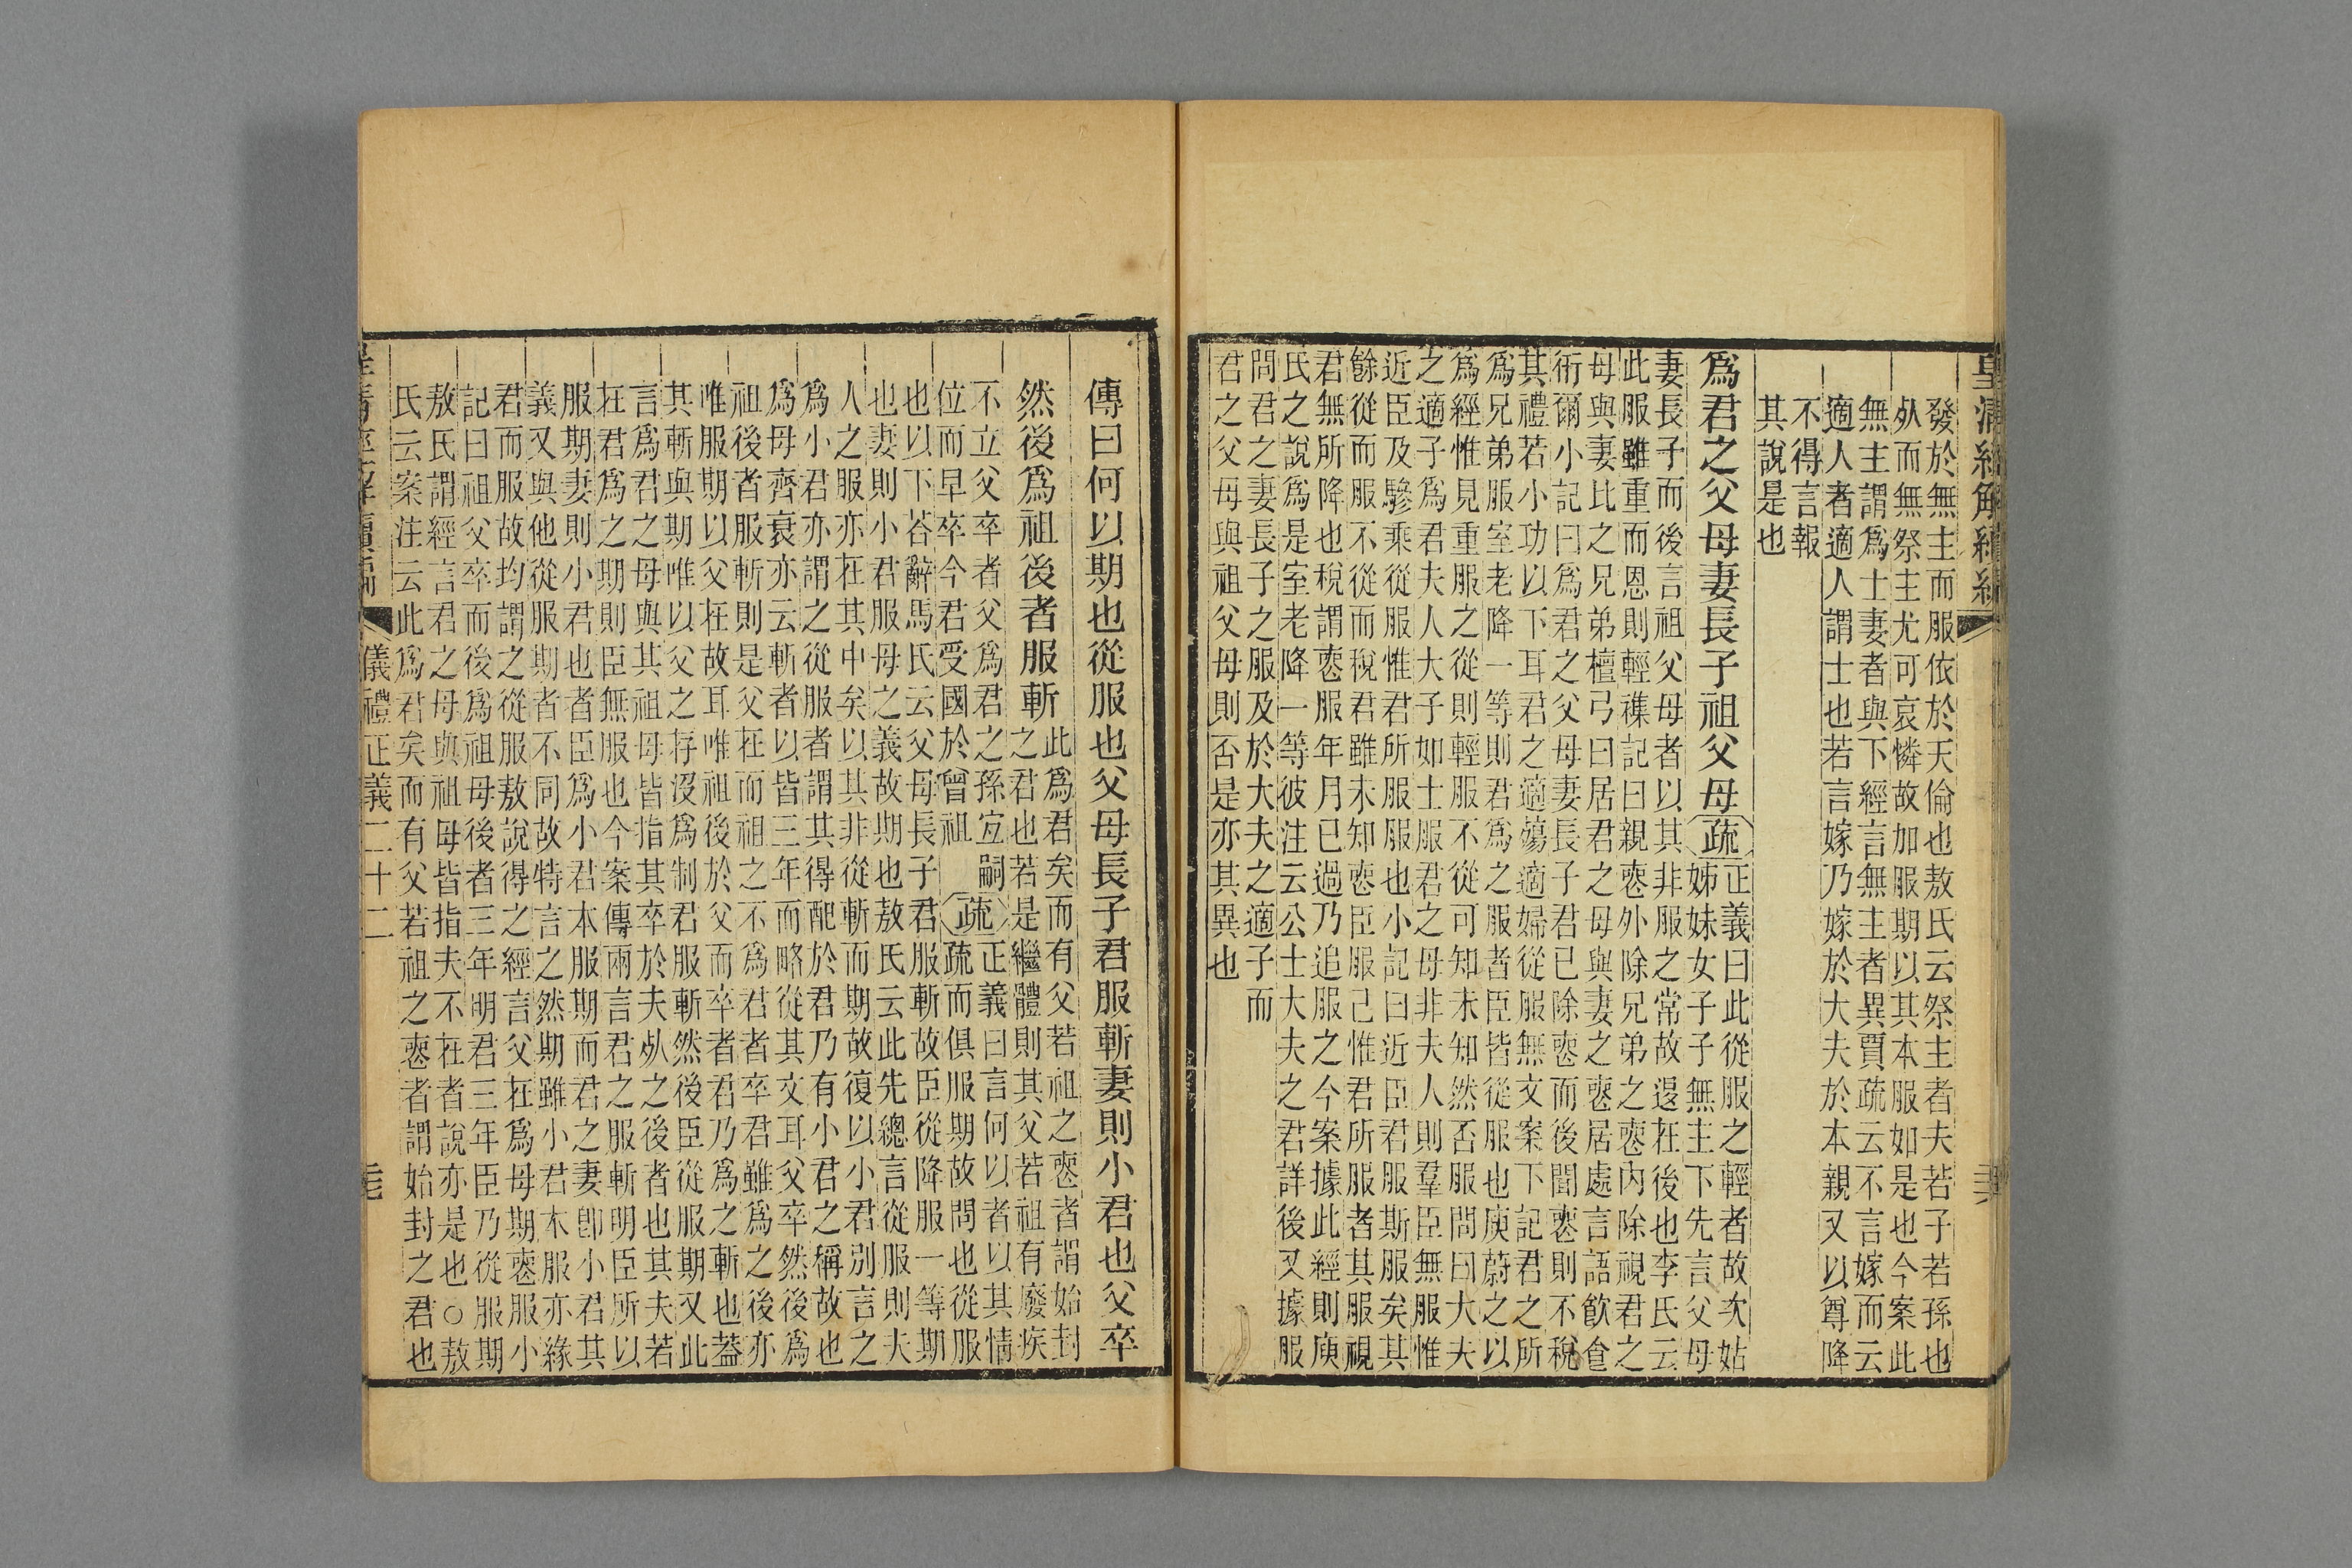 皇清經解續編
發於無主而服依於天倫也敖氏云祭主者夫若子若孫也
㱾而無祭主尤可哀憐故加服期以其本服如是也今案此
無主謂爲士妻者與下經言無主者異賈疏云不言嫁而云
適人者適人謂士也若言嫁乃嫁於大夫於本親又以尊降
不得言報
其說是也
爲君之父母妻長子祖父母疏正義曰此從服之輕者故次姑
姊妹女子子無主下先言父母
妻長子而後言祖父母者以其非服之常故退在後也李氏云
此服雖重而恩則輕襍記曰親喪外除兄弟之喪內除視君之
母與妻比之兄弟檀弓曰居君之母與妻之喪居處言語飮食
衎爾小記曰爲君之父母妻長子君已除喪而後聞喪則不稅
其禮若小功以下耳君之適殤適婦從服無文案下記君之所
爲兄弟服室老降一等則君爲之服者臣皆從服也庾蔚之以
爲經惟見重服之從則輕服不從可知未知然否服問曰大夫
之適子爲君夫人大子如士服君之母非夫人則羣臣無服惟
近臣及驂乘從服惟君所服服也小記曰近臣君服斯服矣其
餘從而服不從而稅君雖未知喪臣服已惟君所服者其服視
君無所降也稅謂喪服年月已過乃追服之今案據此經則庾
氏之說爲是室老降一等彼注云公士大夫之君詳後又據服
問君之妻長子之服及於大夫之適子而
君之父母與祖父母則否是亦其異也
傳曰何以期也從服也父母長子君服斬妻則小君也父卒
然後爲祖後者服斬此爲君矣而有父若祖之喪者謂始封
之君也若是繼體則其父若祖有廢疾
不立父卒者父爲君之孫宜嗣
位而早卒今君受國於曾祖疏正義曰言何以者以其情
疏而俱服期故問也從服
也以下荅辭馬氏云父母長子君服斬故臣從降服一等期
也妻則小君服母之義故期也敖氏云此先總言從服則夫
人之服亦在其中矣以其非從斬而期故復以小君別言之
爲小君亦謂之從服者謂其得配於君乃有小君之稱故也
爲母齊衰亦云斬者以皆三年而略從其文耳父卒然後爲
祖後者服斬則是父在而祖之不爲君者卒君雖爲之後亦
唯服期以父在故耳唯祖後於父而卒者君乃爲之斬也葢
其斬與期唯以父之存沒爲制君服斬然後臣從服期又此
言爲君之母與其祖母皆指其卒於夫㱾之後者也其夫若
在君爲之期則臣無服也今案傳兩言君之服斬明臣所以
服期妻則小君也者臣爲小君本服期而君之妻卽小君其
義又與他從服期者不同故特言之然期雖小君本服亦緣
君而服故均謂之從服敖說得之經言父在爲母期喪服小
記曰祖父卒而後爲祖母後者三年明君三年臣乃從服期
敖氏謂經言君之母與祖母皆指夫不在者說亦是也○敖
氏云案注云此爲君矣而有父若祖之喪者謂始封之君也
儀禮正義二十二